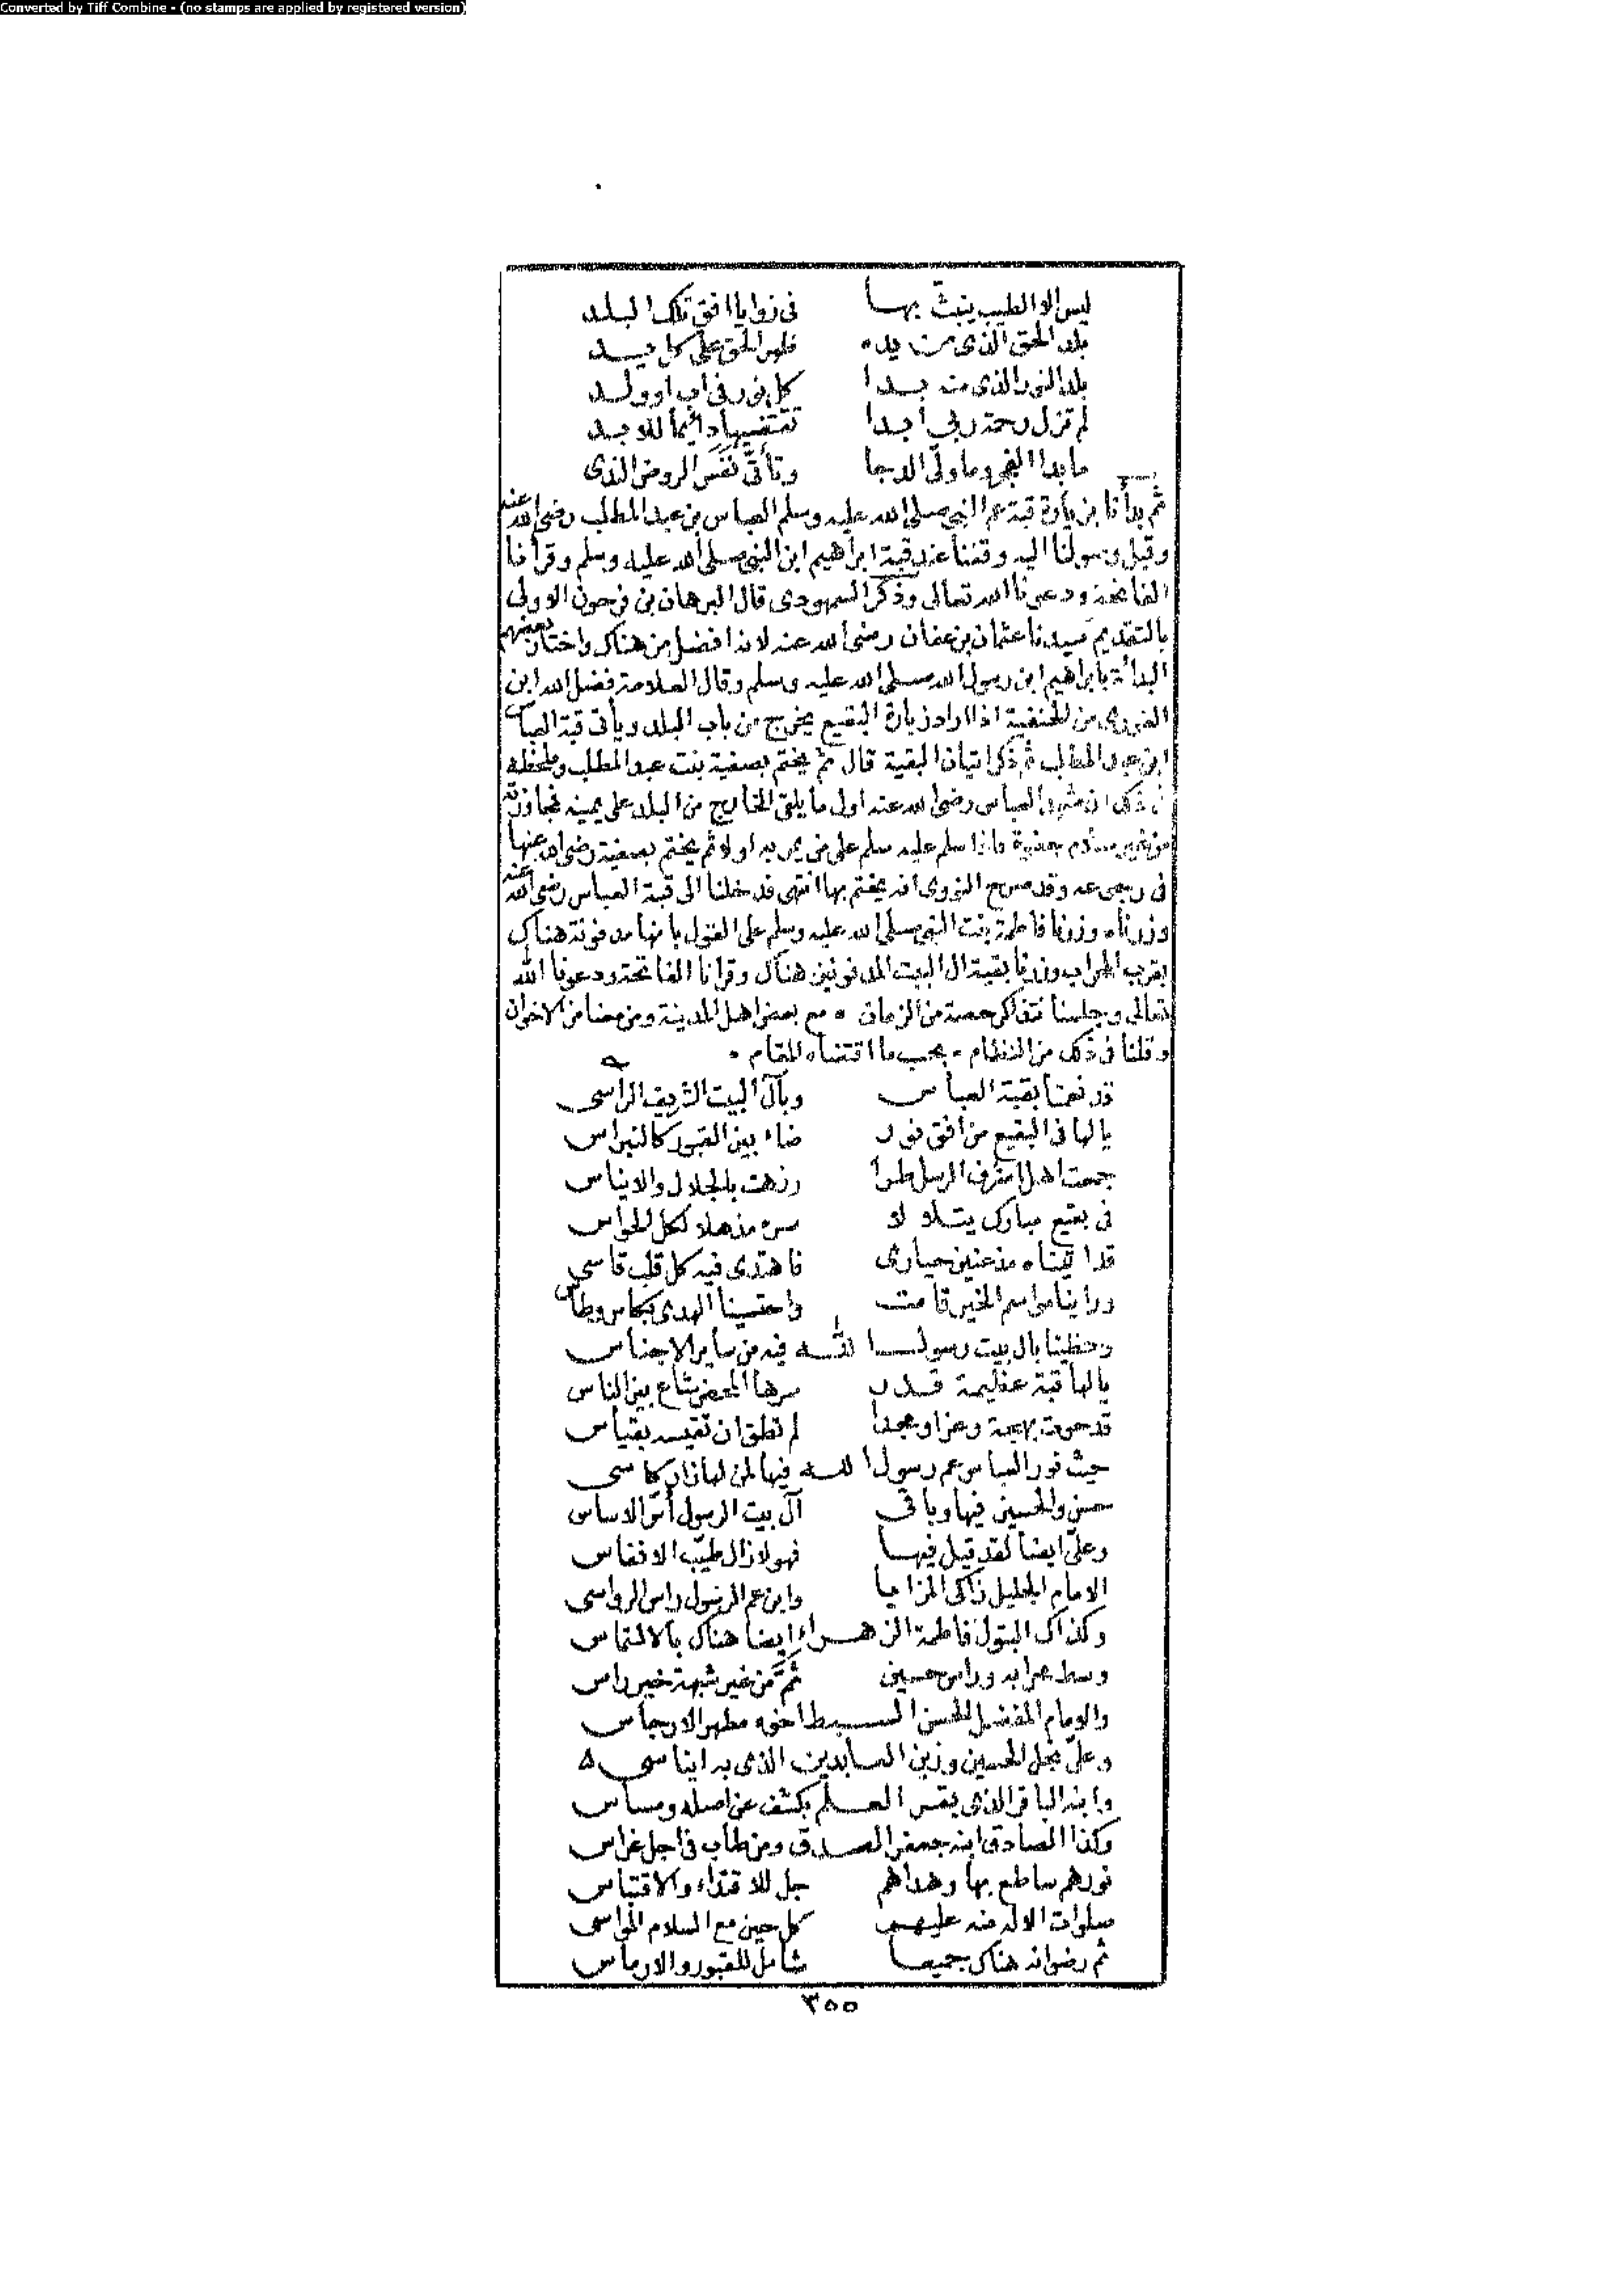 Converted by Tiff Combine - (no stamps are applied by registered version)
ليس الا الطيب ينبثّ بها في زوايا افق تلك البلد
بلد الحق الذي من يده ظهر الحق على كل يد
بلد النور الذي منه بدا كل نور في اب او ولد
لم تزل رحمة ربي ابدا تقتفيها دائما للابد
ما بدا الفجر وما ولّى الدجا وتأتّى نفس الروض الندى
ثم بدأنا بزيارة قبة عم النبي صلى الله عليه وسلم العباس بن عبد المطلب رضي الله عنه
وقبل وصولنا اليه وقفنا عند قبة ابراهيم ابن النبي صلى الله عليه وسلم وقرأنا
الفاتحة ودعونا الله تعالى وذكر السمهودى قال البرهان بن فرحون الاولى
بالتقديم سيدنا عثمان بن عفان رضي الله عنه لانه افضل من هناك واختار بعضهم
البداءة بابراهيم ابن رسول الله صلى الله عليه وسلم وقال العلامة فضل الله ابن
الغورى من الحنفية اذا اراد زيارة البقيع يخرج من باب البلد ويأتى قبة العباس
ابن عبد المطلب ثم ذكر اتيان البقية قال ثم يختم بصفية بنت عبد المطلب وملحظه
في ذلك ان مشهد العباس رضي الله عنه اول ما يلقى الخارج من البلد على يمينه فمجاوزته
من غير سلام جفوة فاذا سلم عليه سلم على من يمر به اولا ثم يختم بصفية رضي الله عنها
في رجوعه وقد صرح النووى انه يختم بها انتهى فدخلنا الى قبة العباس رضي الله عنه
وزرناه وزرنا فاطمة بنت النبي صلى الله عليه وسلم على القول بانها مدفونة هناك
بقرب المحراب وزرنا بقية ال البيت المدفونين هناك وقرانا الفاتحة ودعونا الله
تعالى وجلسنا نتذاكر حصة من الزمان • مع بعض اهل المدينة ومن معنا من الاخوان
وقلنا في ذلك من النظام • بحسب ما اقتضاه المقام •
قد نعمنا بقبة العباس وبآل البيت الشريف الراسى
يا لها في البقيع من افق نور ضاء بين القبور كالنبراس
جمعت اهل اشرف الرسل طرا وزهت بالجلال والايناس
في بقيع مبارك يتلالا سره مذهلا لكل الحواس
قد اتيناه مذعنين حيارى فاهتدى فيه كل قلب قاسى
وراينا مواسم الخير قامت واحتسينا الهدى بكاس وطاس
وحظينا بال بيت رسول الله فيه من سائر الاجناس
يا لها قبة عظيمة قدر سرها المحض شاع بين الناس
قد حوت بهجة وعزا ومجدا لم تطق ان تقيسه بقياس
حيث نور العباس عم رسول الله فيها لمن لها زار كاسى
حسن والحسين فيها وباقى آل بيت الرسول أسّ الاساس
وعلىّ ايضا لقد قيل فيها فهو لازال طيّب الانفاس
الامام الجليل زاكى المزايا وابن عم الرسول راس الرواسى
وكذاك البتول فاطمة الزهراء ايضا هناك بالالتماس
وسط محرابه وراس حسين ثَمَّ من غير شبهة خير راس
والامام المفضل الحسن السبط اخوه مطهر الارجاس
وعلىّ نجل الحسين وزين العابدين الذى به ايناسى ۵
وابنه الباقر الذى بقر العلم بكشف عن اصله ومساس
وكذا الصادق ابنه جعفر الصدق ومن طاب في اجل غراس
نورهم ساطع بها وهداهم جل للاقتداء والاقتباس
صلوات الاله منه عليهم كل حين مع السلام المواسى
ثم رضوانه هناك جميعا شامل للقبور والارماس
٣٥٥